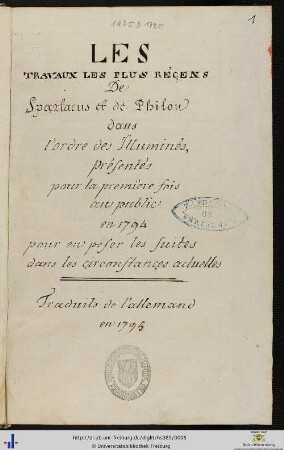 1
LES
TRAVAUX LES PLUS RÉÇENS
De
Spartacus et de Philon
dans
l'ordre des Illuminés,
présentés
pour la premiere fois
au public
en 1794
pour en peser les suites
dans les circonstances actuelles
Traduits de l'allemand
en 1795
© Universitätsbibliothek Freiburg